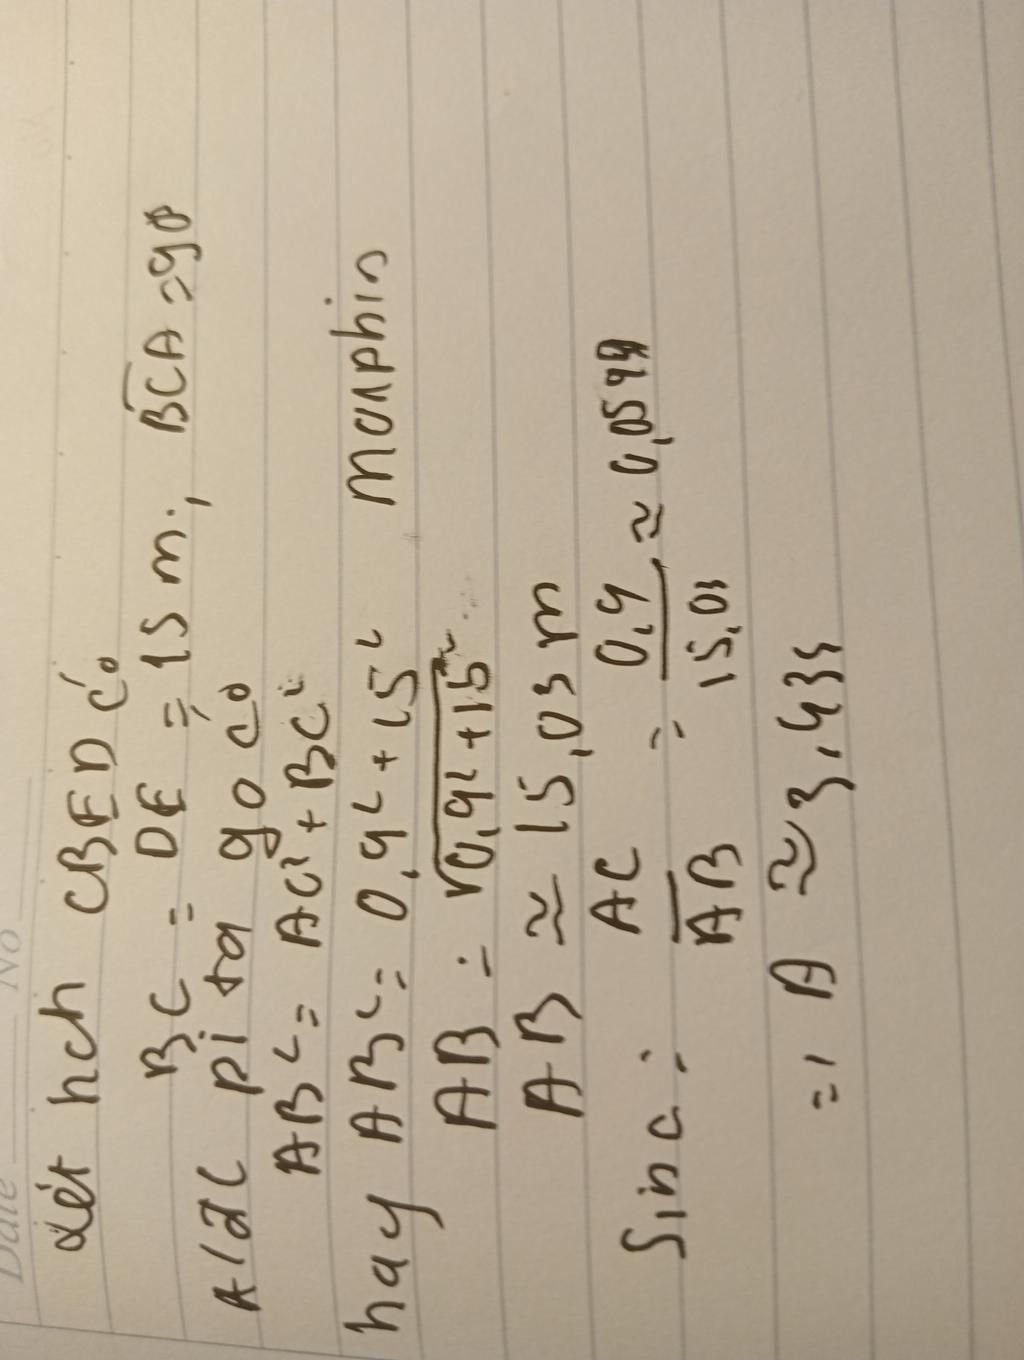 Date No
Xét hcn CBED có
BC = DE = 15 m, BCA = 90
A/dC pi ta go có
AB² = AC² + BC²
hay AB² = 0,9² + 15² morphin
AB = √0,9² + 15²
AB ≈ 15,03 m
Sin α = AC/AB = 0,9/15,03 ≈ 0,0599
=) A ≈ 3,433